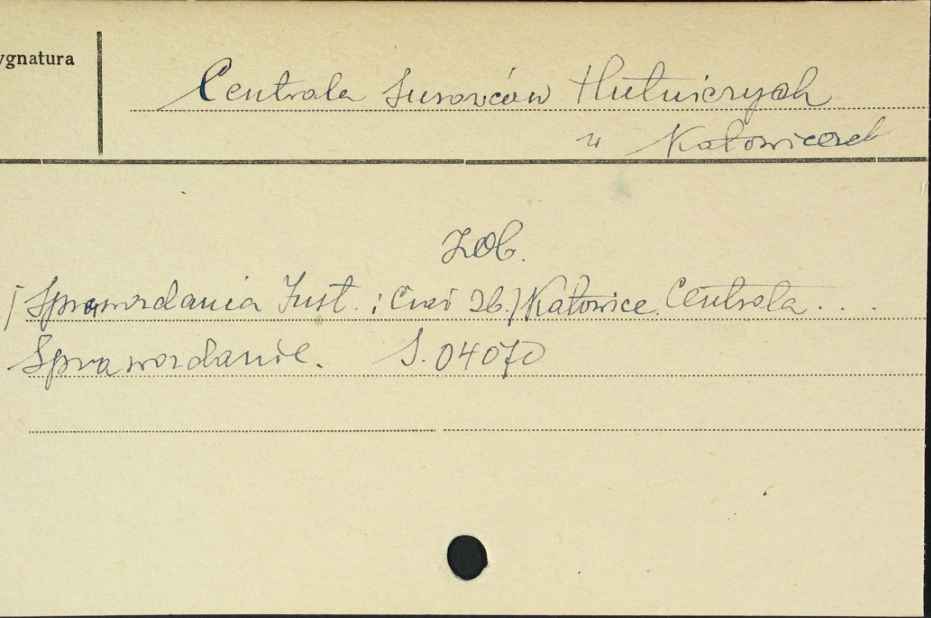 ygnatura
Centrala Surowców Hutniczych
w Katowicach
Zob.
[Sprawozdania Inst. i Ciał Zb.] Katowice. Centrala . . .
Sprawozdanie. S. 04070